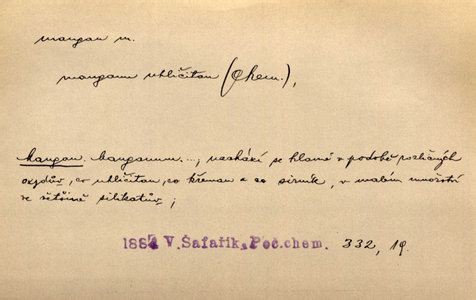 mangan m.
mangan uhličitan (Chem.),
Mangan. Manganum...; nachází se hlavně v podobě rozličných
oxydův, co uhličitan, co křeman a co sirník, v malém množství
ve většině silikatův;
188 V. Šafařík, Poč.chem. 332, 19.